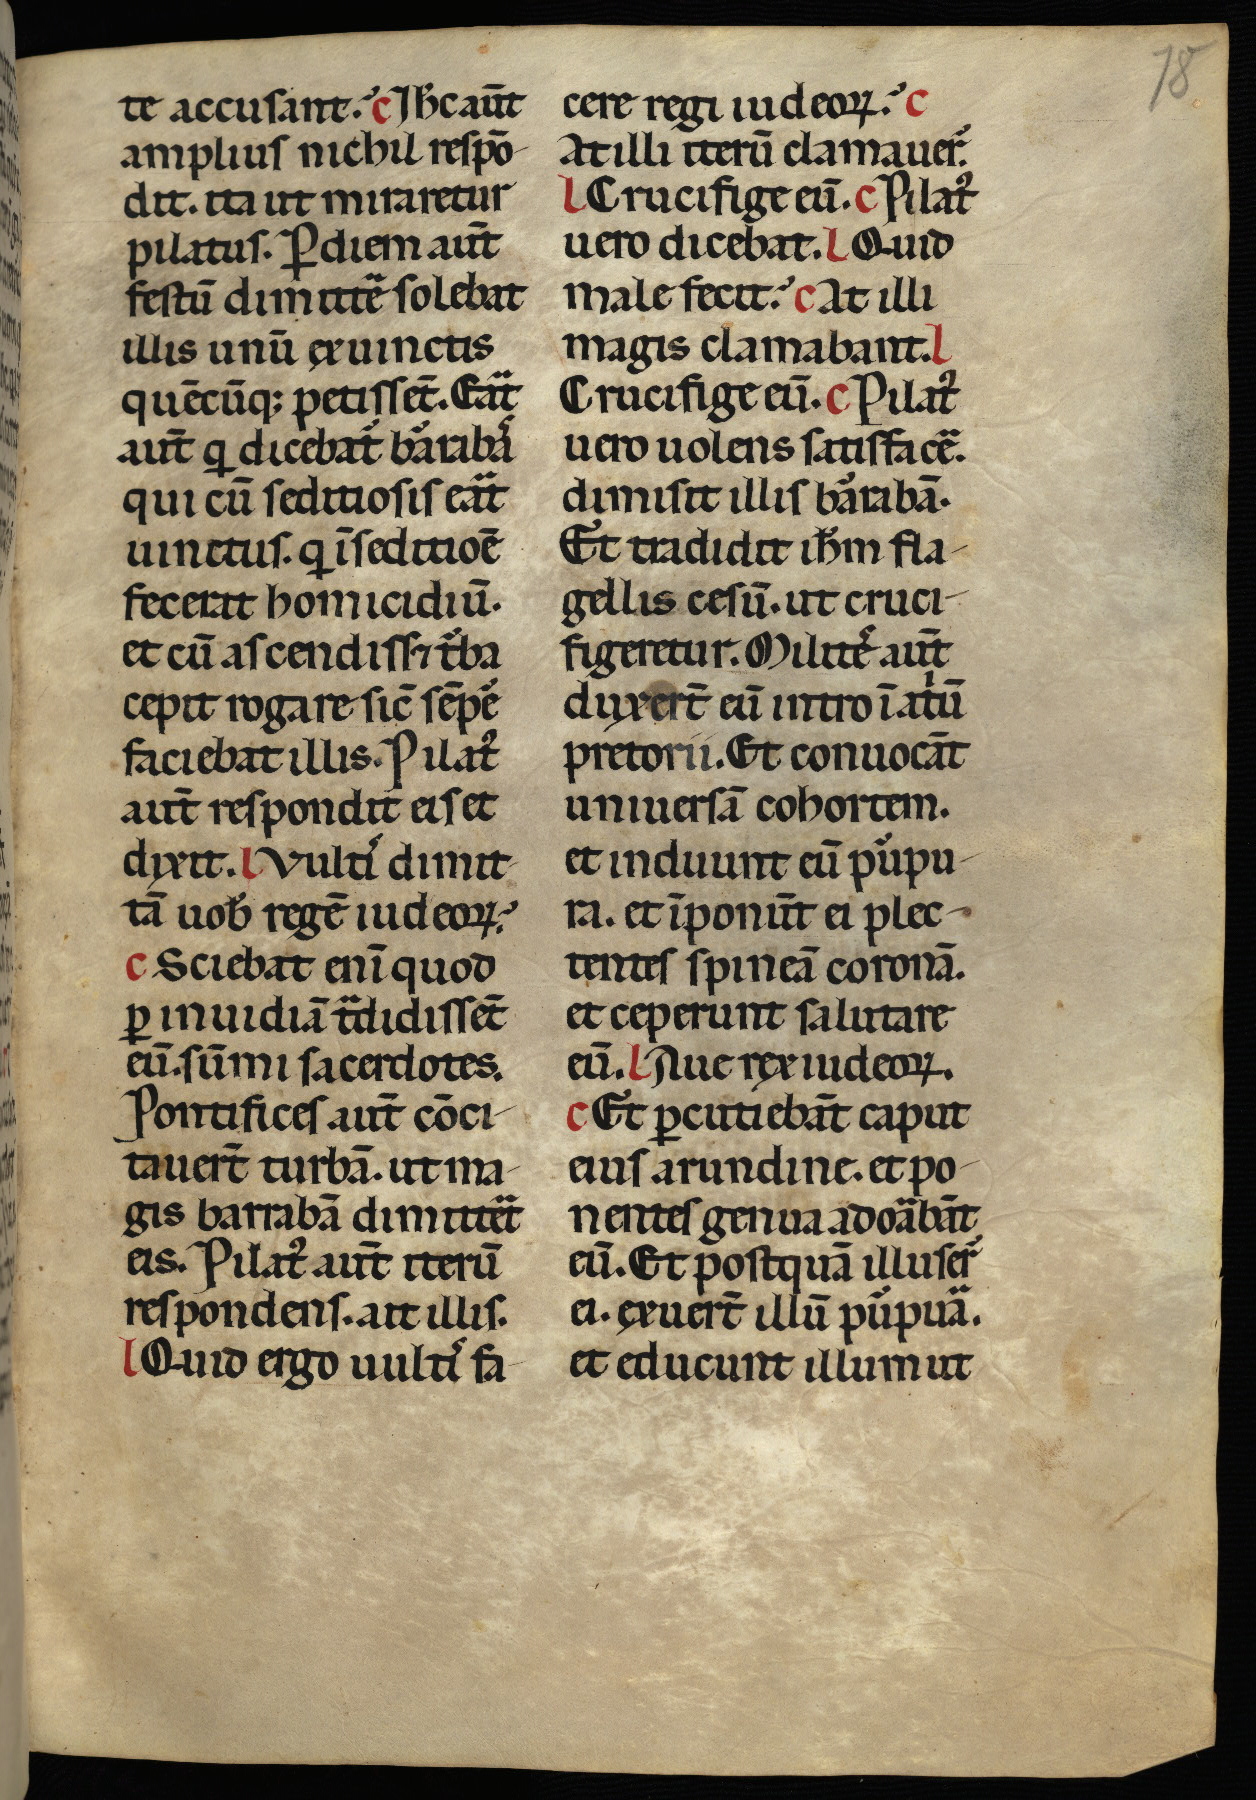 78
te accusant. c Ih̄c aut̄
amplius nichil respō-
dit. ita ut miraretur
pilatus. Ꝑ diem aut̄
festū dimittē solebat
illis unū ex uinctis
quēcūq; petissēt. Erat
aut̄ q dicebat baraba
qui cū seditiosis erat
uinctus. q ī seditioē
fecerat homicidiū.
et cū ascendiss& tba
cepit rogare sic̄ sēpe
faciebat illis. Pilat᾽
aut̄ respondit eis et
dixit. l Vulti dimit-
tā uob̄ regē iudeoꝝ?
c Sciebat enī quod
ꝑ inuidiā tdidissēt
eū. sūmi sacerdotes.
Pontifices aut̄ cōci-
tauert̄ turbā. ut ma-
gis barrabā dimittet
eis. Pilat᾽ aut̄ iterū
respondens. ait illis.
l Quid ergo uulti fa-
cere regi iudeoꝝ? c
At illi iterū clamauer̄.
l Crucifige eū. c Pilat᾽
uero dicebat. l Quid
male fecit? c At illi
magis clamabant. l
Crucifige eū. c Pilat᾽
uero uolens satisfacē.
dimisit illis barabā.
Et tradidit ih̄m fla-
gellis cesū. ut cruci-
figeretur. Milite aut̄
duxert̄ eū intro ī atiū
pretorii. Et conuocāt
uniuersā cohortem.
et induunt eū pupu-
ra. et īponūt ei plec-
tentes spineā coronā.
et ceperunt salutare
eū. l Aue rex iudeoꝝ.
c Et ꝑcutiebāt caput
eius arundine. et po-
nentes genua adoabāt
eū. Et postquā illuser̄
ei. exuert̄ illū pupua.
et educunt illum ut